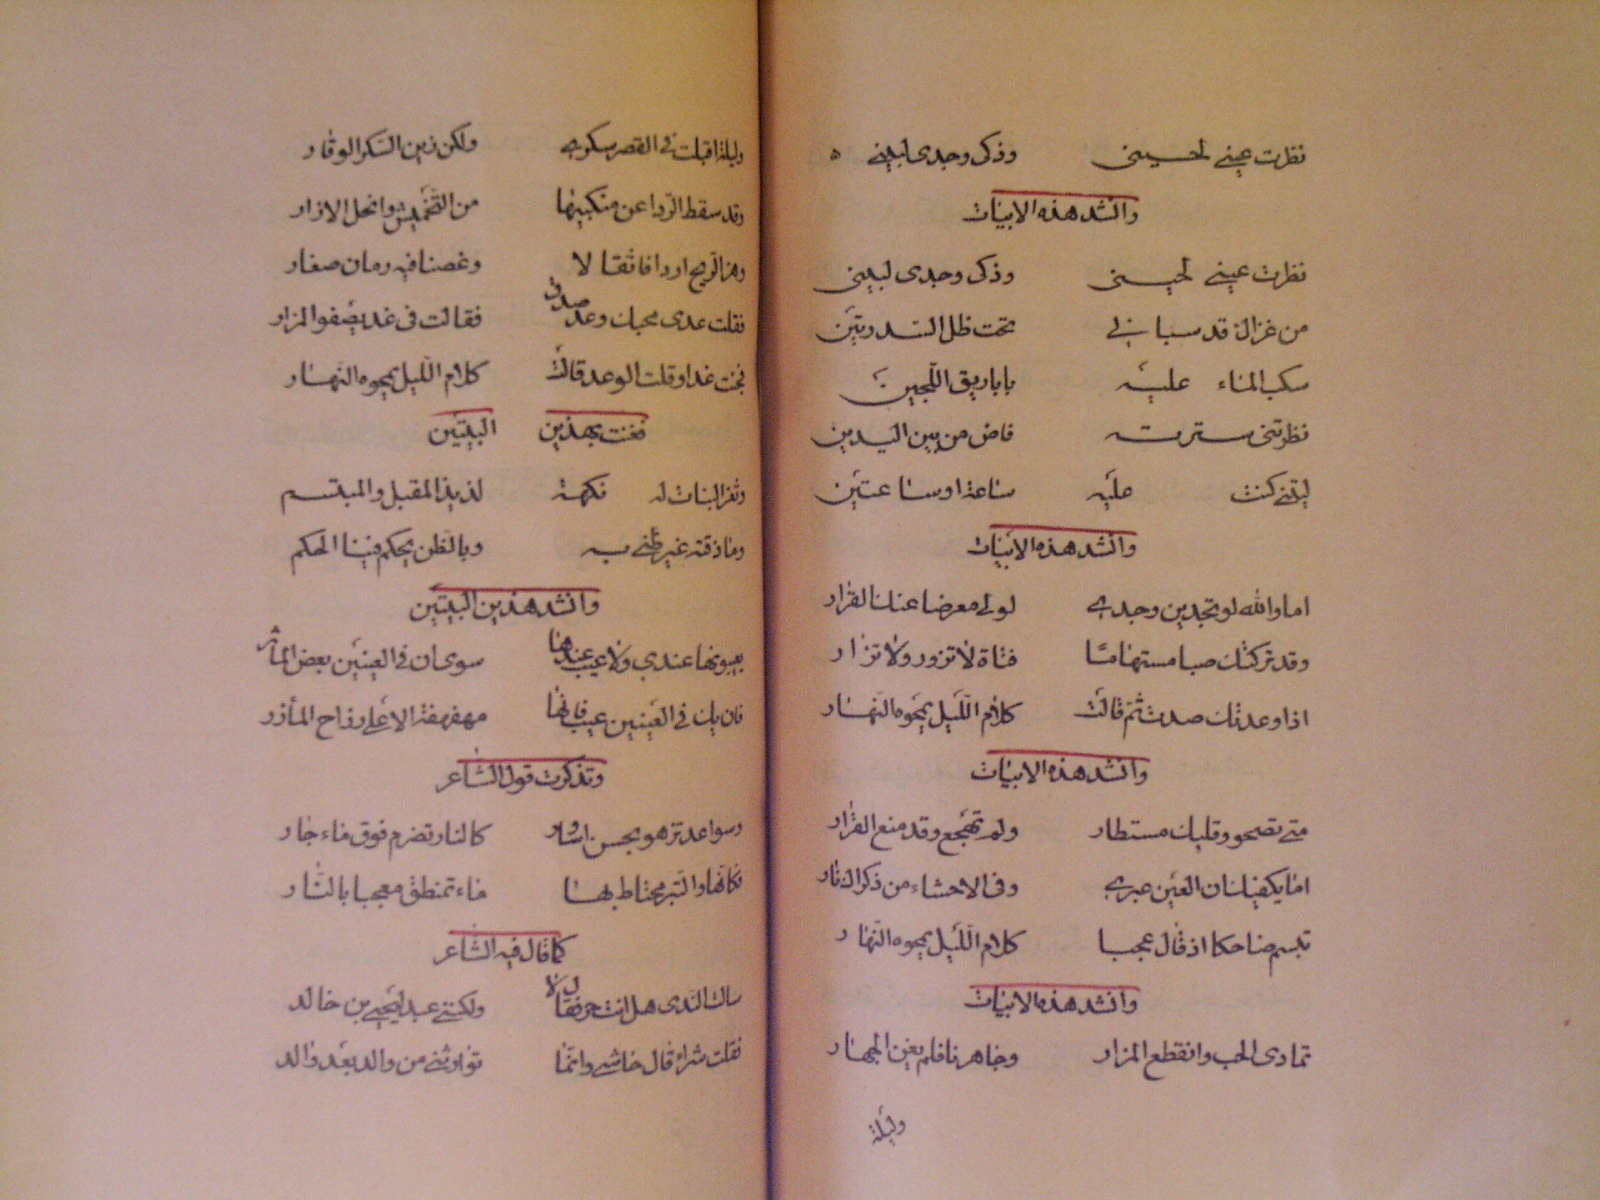 نظرت عيني لحسيني وذكى وجدى لبيني ه
وانشد هذه الابيات
نظرت عيني لحيني وذكى وجدى لبيني
من غزال قد سباني تحت ظل السدرتين
سكب الماء عليه باباريق اللجين
نظرتني سترته فاض من بين اليدين
ليتني كنت عليه ساعة او ساعتين
وانشد هذه الابيات
اما والله لو تجدين وجدي لولى معرضا عنك القرار
وقد تركتك صبا مستهاما فتاة لا تزور ولا تزار
اذا وعدتك صدت ثم قالت كلام الليل يمحوه النهار
وانشد هذه الابيات
متى تصحو وقلبك مستطار ولم تهجع وقد منع القرار
اما يكفيك ان العين عبرى وفى الاحشاء من ذكراك نار
تبسم ضاحكا اذ قال عجبا كلام الليل يمحوه النهار
وانشد هذه الابيات
تمادى الحب وانقطع المزار وجاهرنا فلم يغن الجهار
وليلة
وليلة اقبلت فى القصر سكرى ولكن زين السكر الوقار
وقد سقط الردا عن منكبيها من التخميش وانحل الازار
وهز الريح اردافا ثقالا وغصنا فيه رمان صغار
فقلت عدى محبك وعد صدق فقالت فى غد يصفو المزار
فجئت غدا وقلت الوعد قالت كلام الليل يمحوه النهار
فغنت بهذين البيتين
وثغر البنات له نكهة لذيذ المقبل والمبتسم
وما ذقته غير ظني به وبالظن يحكم فينا الحكم
وانشد هذين البيتين
يعيبونها عندي ولا عيب عندها سوى ان فى العينين بعض المآثر
فان يك فى العينين عيب فانها مهفهفة الاعلى رداح المآزر
وتذكرت قول الشاعر
وسواعد تزهو بحسن اساور كالنار تضرم فوق ماء جار
فكانها والتبر محتاط بها ماء تمنطق معجبا بالنار
كما قال فيه الشاعر
سالت الندى هل انت حر فقال لا ولكنني عبد ليحيى بن خالد
فقلت شراء قال حاشى وانما توارثني من والد بعد والد